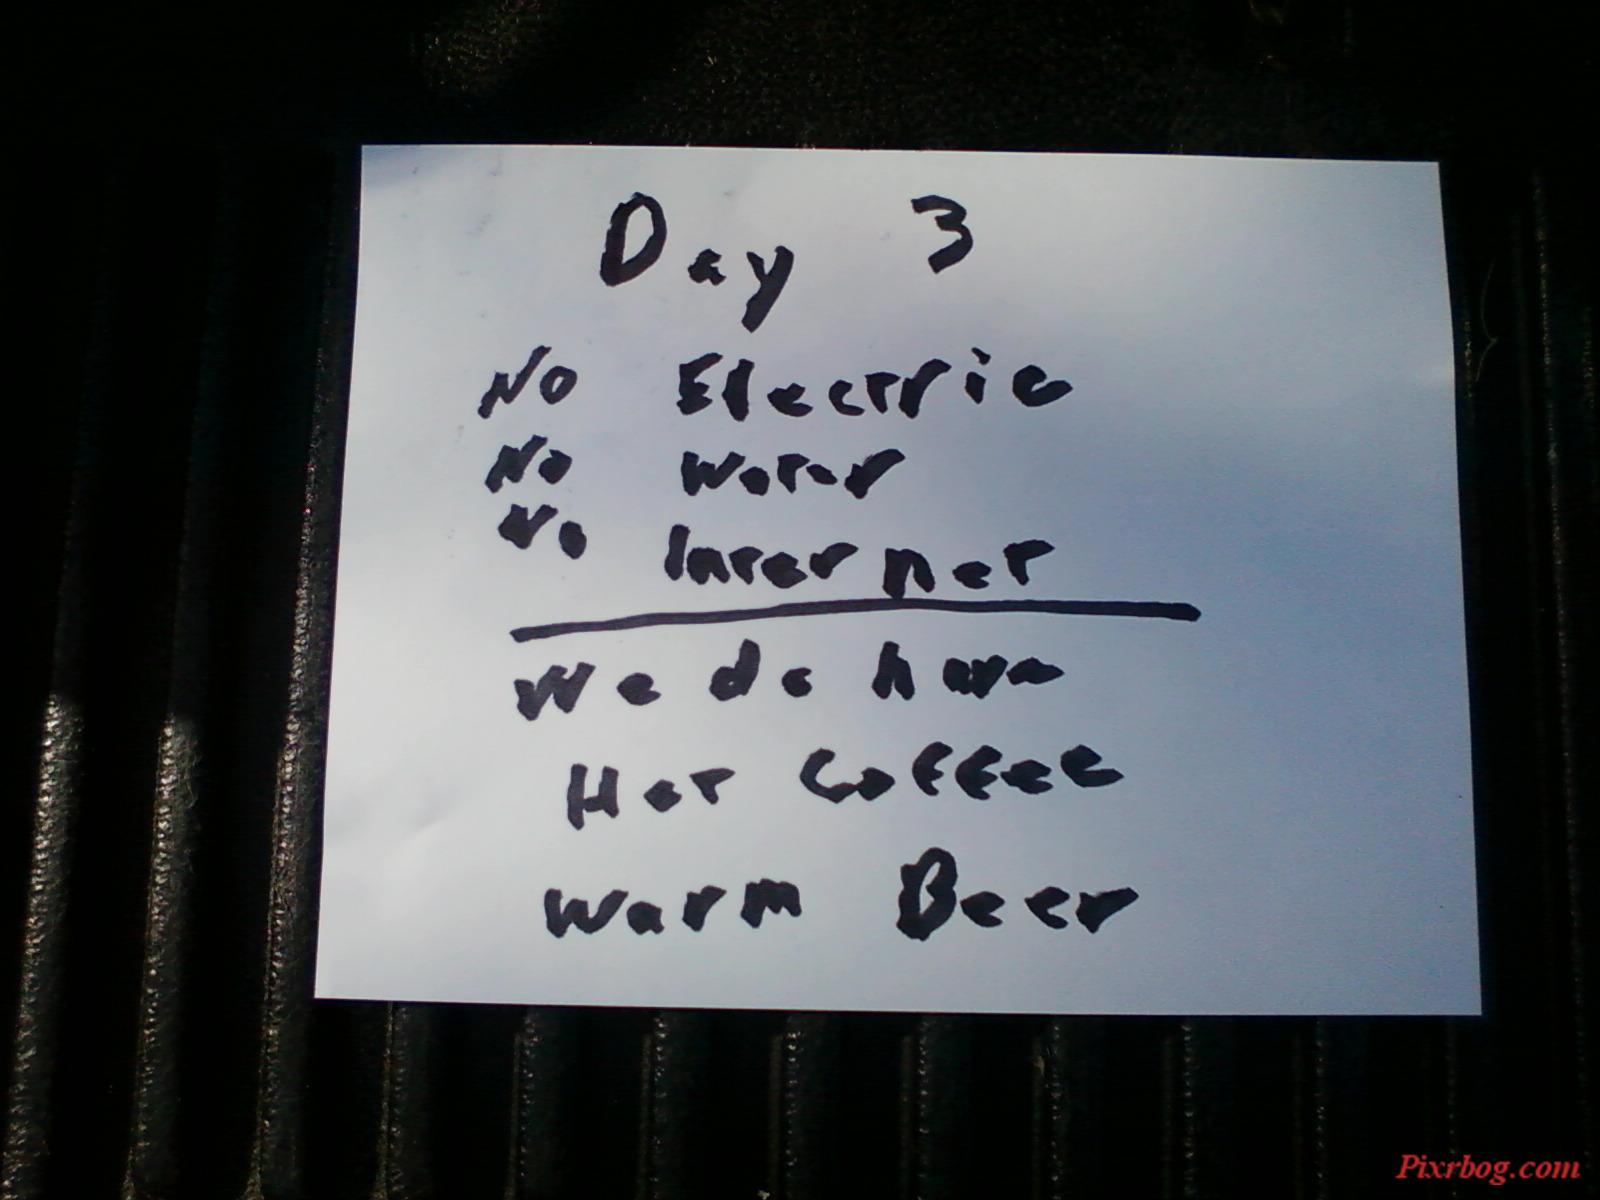 Day 3
No Electric
No Water
No Internet
We do have
Hot Coffee
Warm Beer
Pixrbog.com